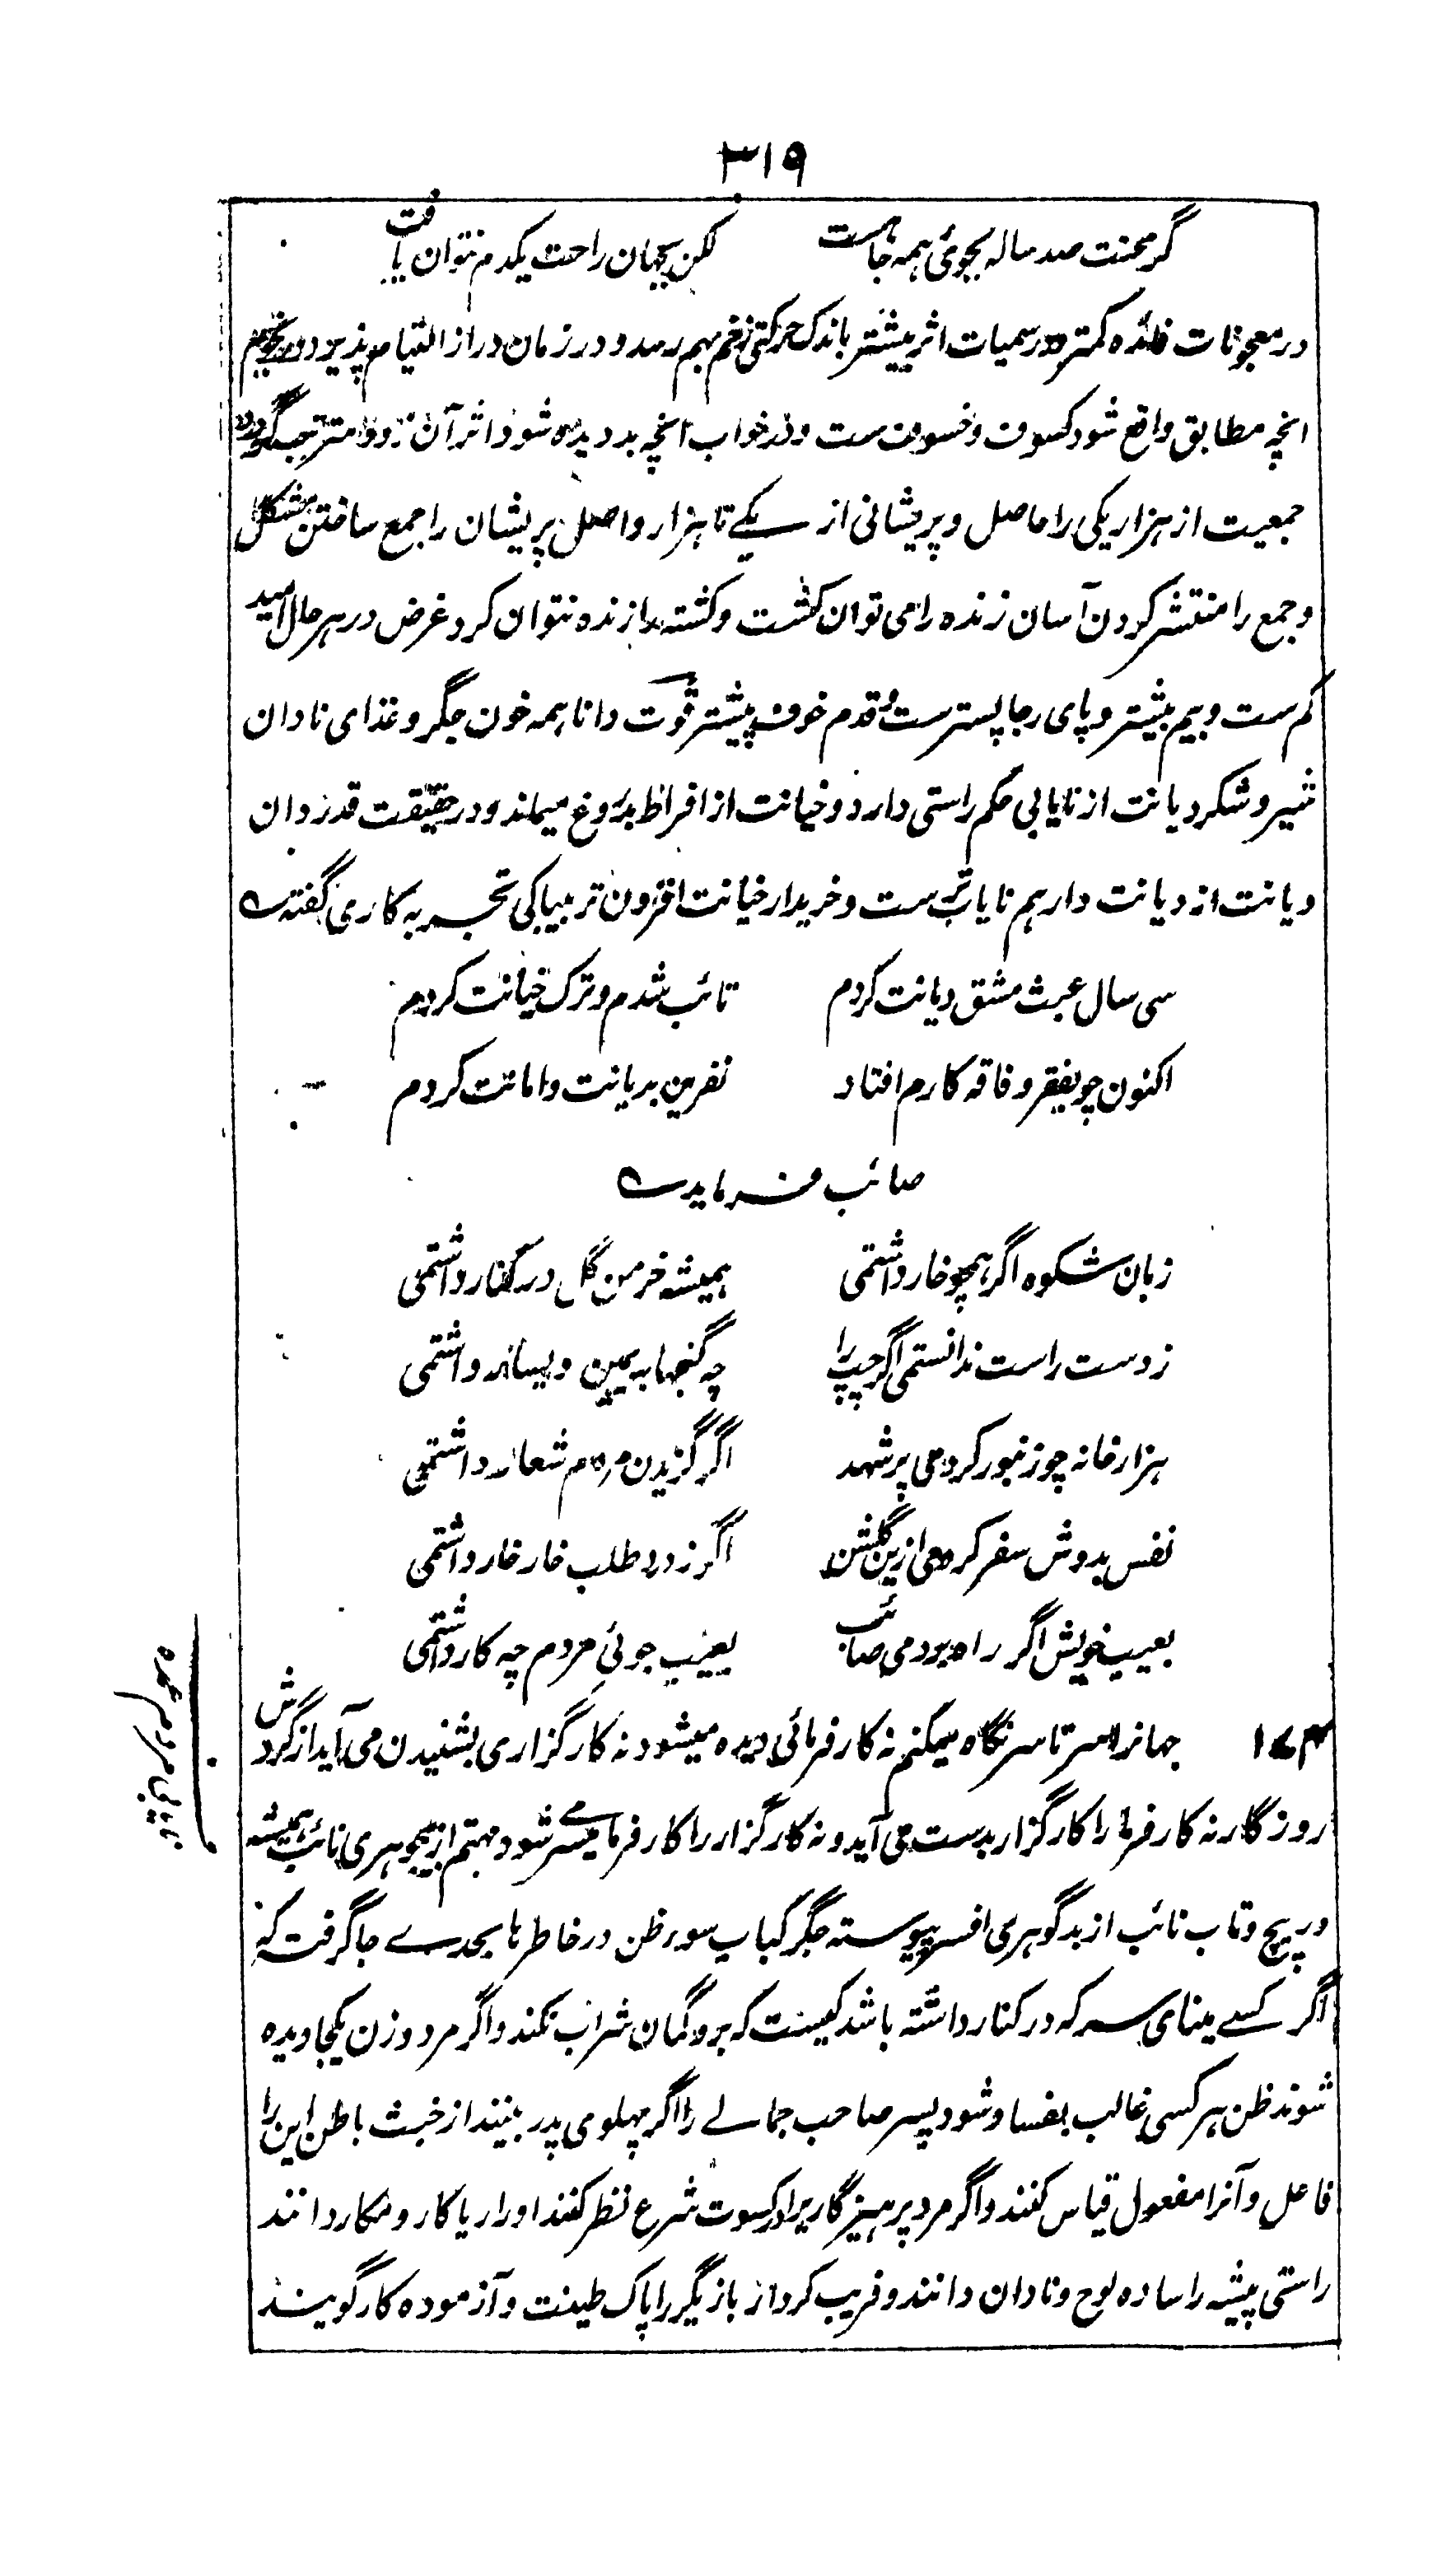 ۳۱۹
گر محنت صد ساله بجوئی همه جا هست لکن بجهان راحت یکدم نتوان یافت
در معجونات فائده کمتر و در سمیات اثر بیشتر باندک حرکتی زخم بهم رسد و در زمان دراز التیام پذیرد در نجوم
انچه مطابق واقع شود کسوف و خسوف ست و در خواب انچه بد دیده شود اثر آن زود مترتب گردد
جمعیت از هزار یکی را حاصل و پریشانی از یکے تا هزار واصل پریشان را جمع ساختن مشکل
و جمع را منتشر کردن آسان زنده را می توان کشت و کشته را زنده نتوان کرد غرض در هر حال امید
کم ست و بیم بیشتر و پای رجا پسترست و قدم خوف پیشتر قوت دانا همه خون جگر و غذای نادان
شیر و شکر دیانت از نایابی حکم راستی دارد و خیانت از افراط بدروغ میماند و در حقیقت قدردان
دیانت از دیانت دار هم نایاب ترست و خریدار خیانت افزون تر بیباکی تجربه کاری گفته ے
سی سال عبث مشق دیانت کردم تائب شدم و ترک خیانت کردم
اکنون چو بفقر و فاقه کارم افتاد نفرین بدیانت و امانت کردم
صائب فرماید ے
زبان شکوه اگر همچو خار داشتمی همیشه خرمن گل در کنار داشتمی
ز دست راست ندانستمی اگر چپ را چه گنجها به یمین و یسار داشتمی
هزار خانه چو زنبور کردمی پر شهد اگر گزیدن مردم شعار داشتمی
نفس بدوش سفر کردمی ازین گلشن اگر ز درد طلب خار خار داشتمی
بعیب خویش اگر راه بردمی صائب بعیب جوئی مردم چه کار داشتمی
۱۷۴ جهانرا سر تا سر نگاه میکنم نه کارفرمائی دیده میشود نه کارگزاری بشنیدن می آید از گردش
روزگار نه کارفرما را کارگزار بدست می آید و نه کارگزار را کارفرما میسر شود مهتم از بیجوهری نائب همیشه
در پیچ و تاب نائب از بدگوهری افسر پیوسته جگر کباب سوء ظن در خاطر ها بحدے جا گرفت که
اگر کسے مینای سرکه در کنار داشته باشد کیست که برو گمان شراب نکند و اگر مرد و زن یکجا دیده
شوند ظن هر کسی غالب بفساد شود پسر صاحب جمالے را اگر پهلوی پدر بینند از خبث باطن این را
فاعل و آنرا مفعول قیاس کنند و اگر مرد پرهیزگار را در کسوت شرع نظر کنند او را ریاکار و مکار دانند
راستی پیشه را ساده لوح و نادان دانند و فریب کردار بازیگر را پاک طینت و آزموده کار گویند